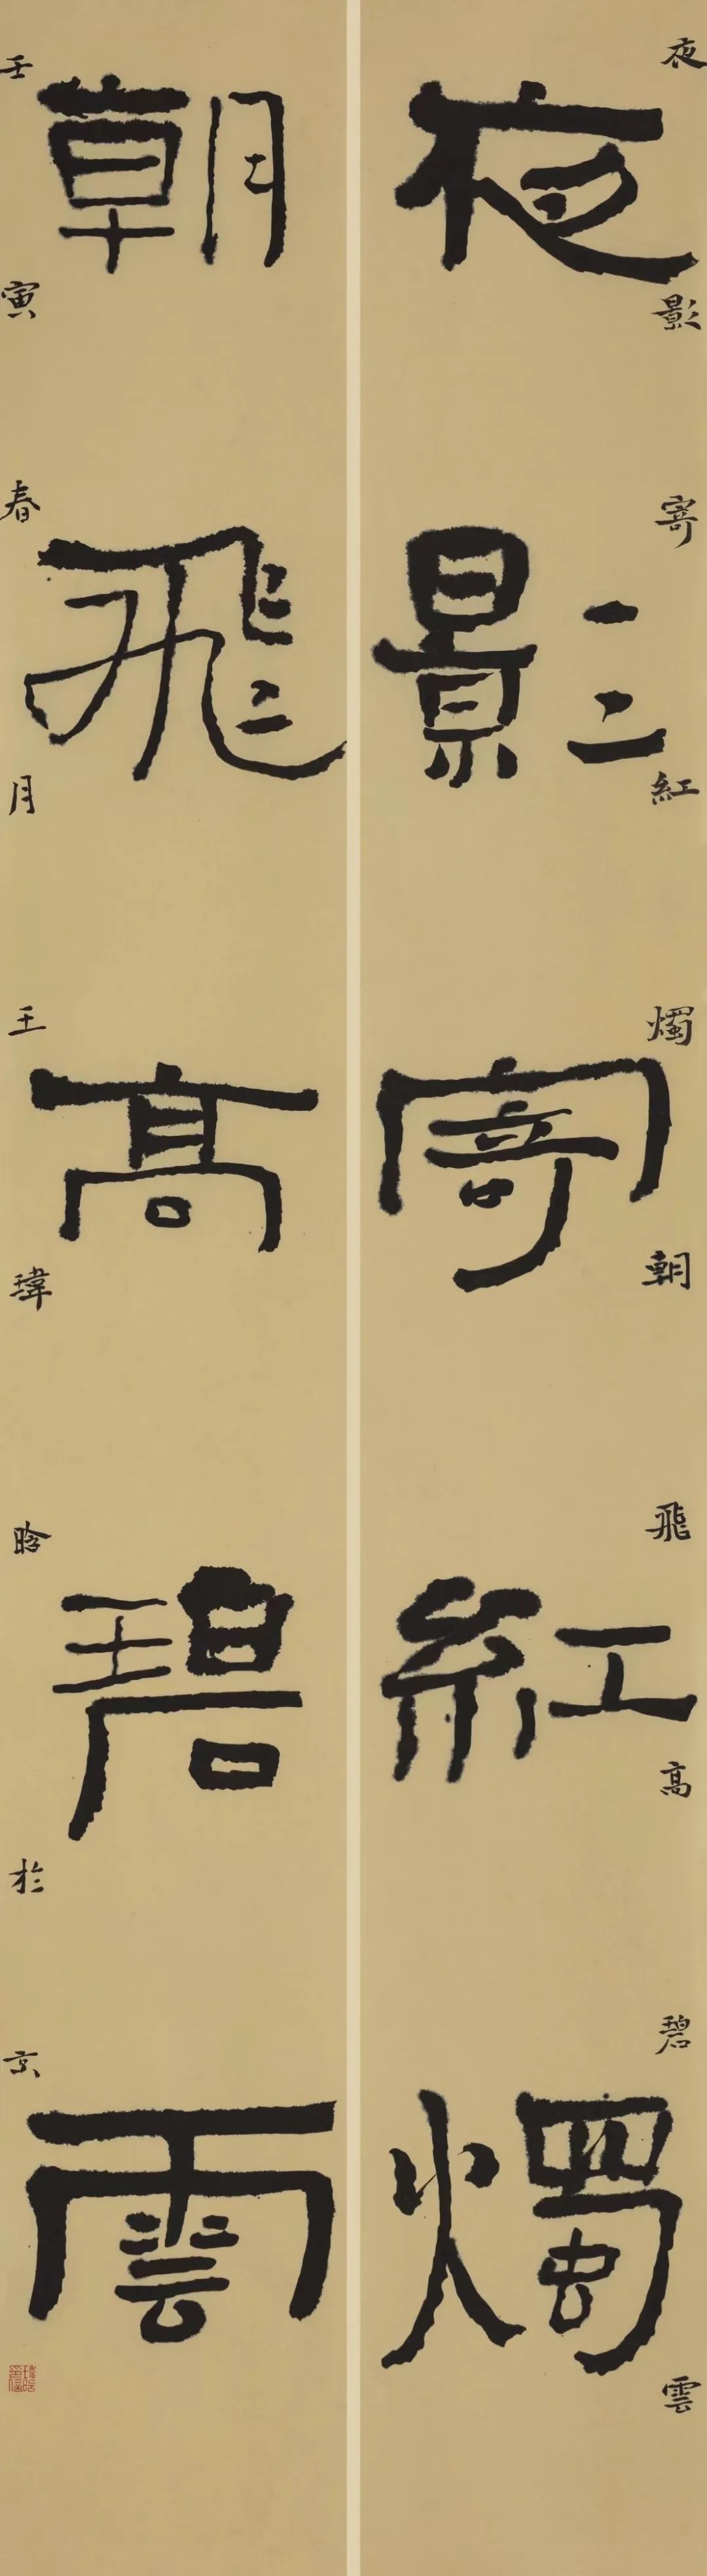 夜影寄紅燭
朝飛高碧雲
夜影寄紅燭朝飛高碧雲
壬寅春月王瑋晗於京